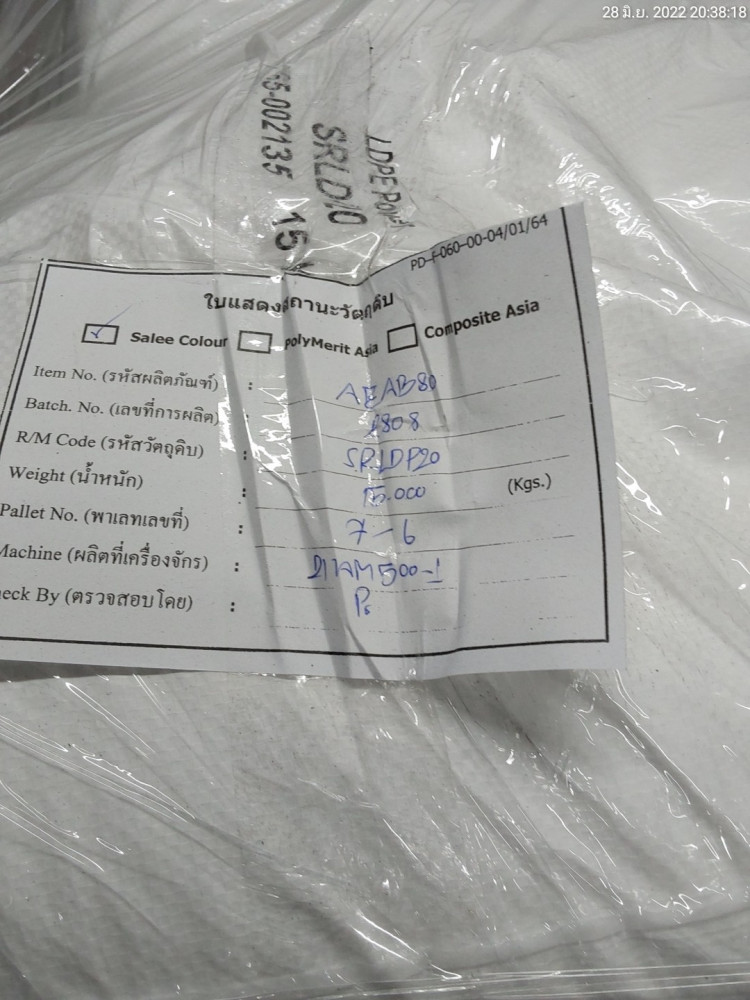 28 มิ.ย. 2022 20:38:18
LDPE
SRLD10
002135 15
PD-F-060-00-04/01/64
ใบแสดงสถานะวัตถุดิบ
Salee Colour polyMerit Asia Composite Asia
Item No. (รหัสผลิตภัณฑ์) : AEAB80
Batch. No. (เลขที่การผลิต) : 1808
R/M Code (รหัสวัตถุดิบ) : SRLDP20
Weight (น้ำหนัก) : 15.000 (Kgs.)
Pallet No. (พาเลทเลขที่) : 7-6
Machine (ผลิตที่เครื่องจักร) :
eck By (ตรวจสอบโดย) :